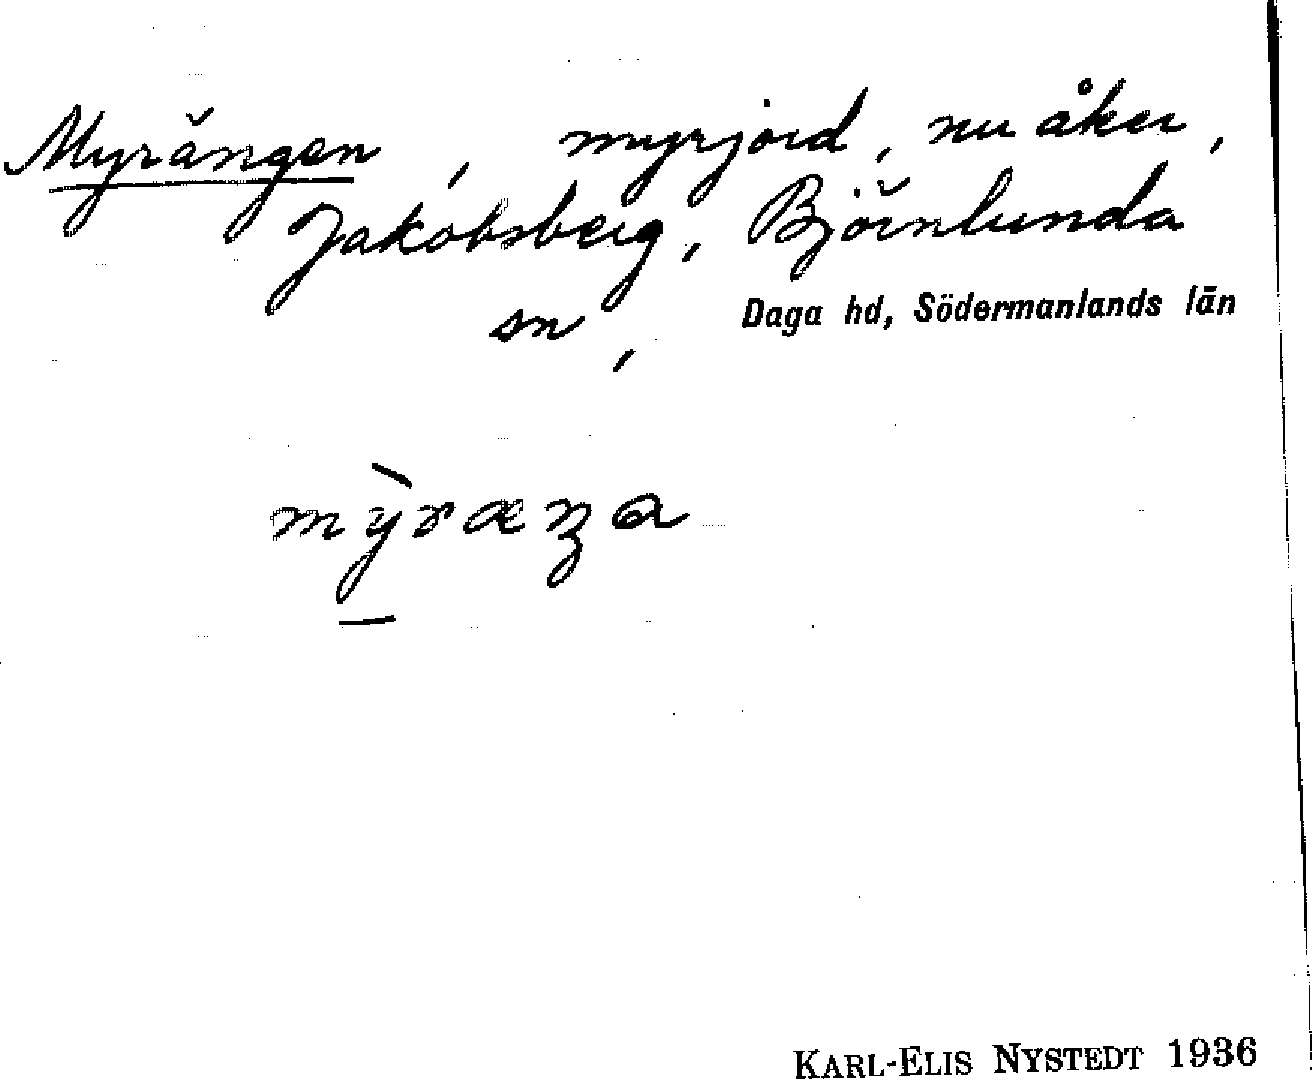 Myrängen, myrjord, nu åker,
Jakobsberg, Björnlunda
sn,
Daga hd, Södermanlands län
KARL-ELIS NYSTEDT 1936